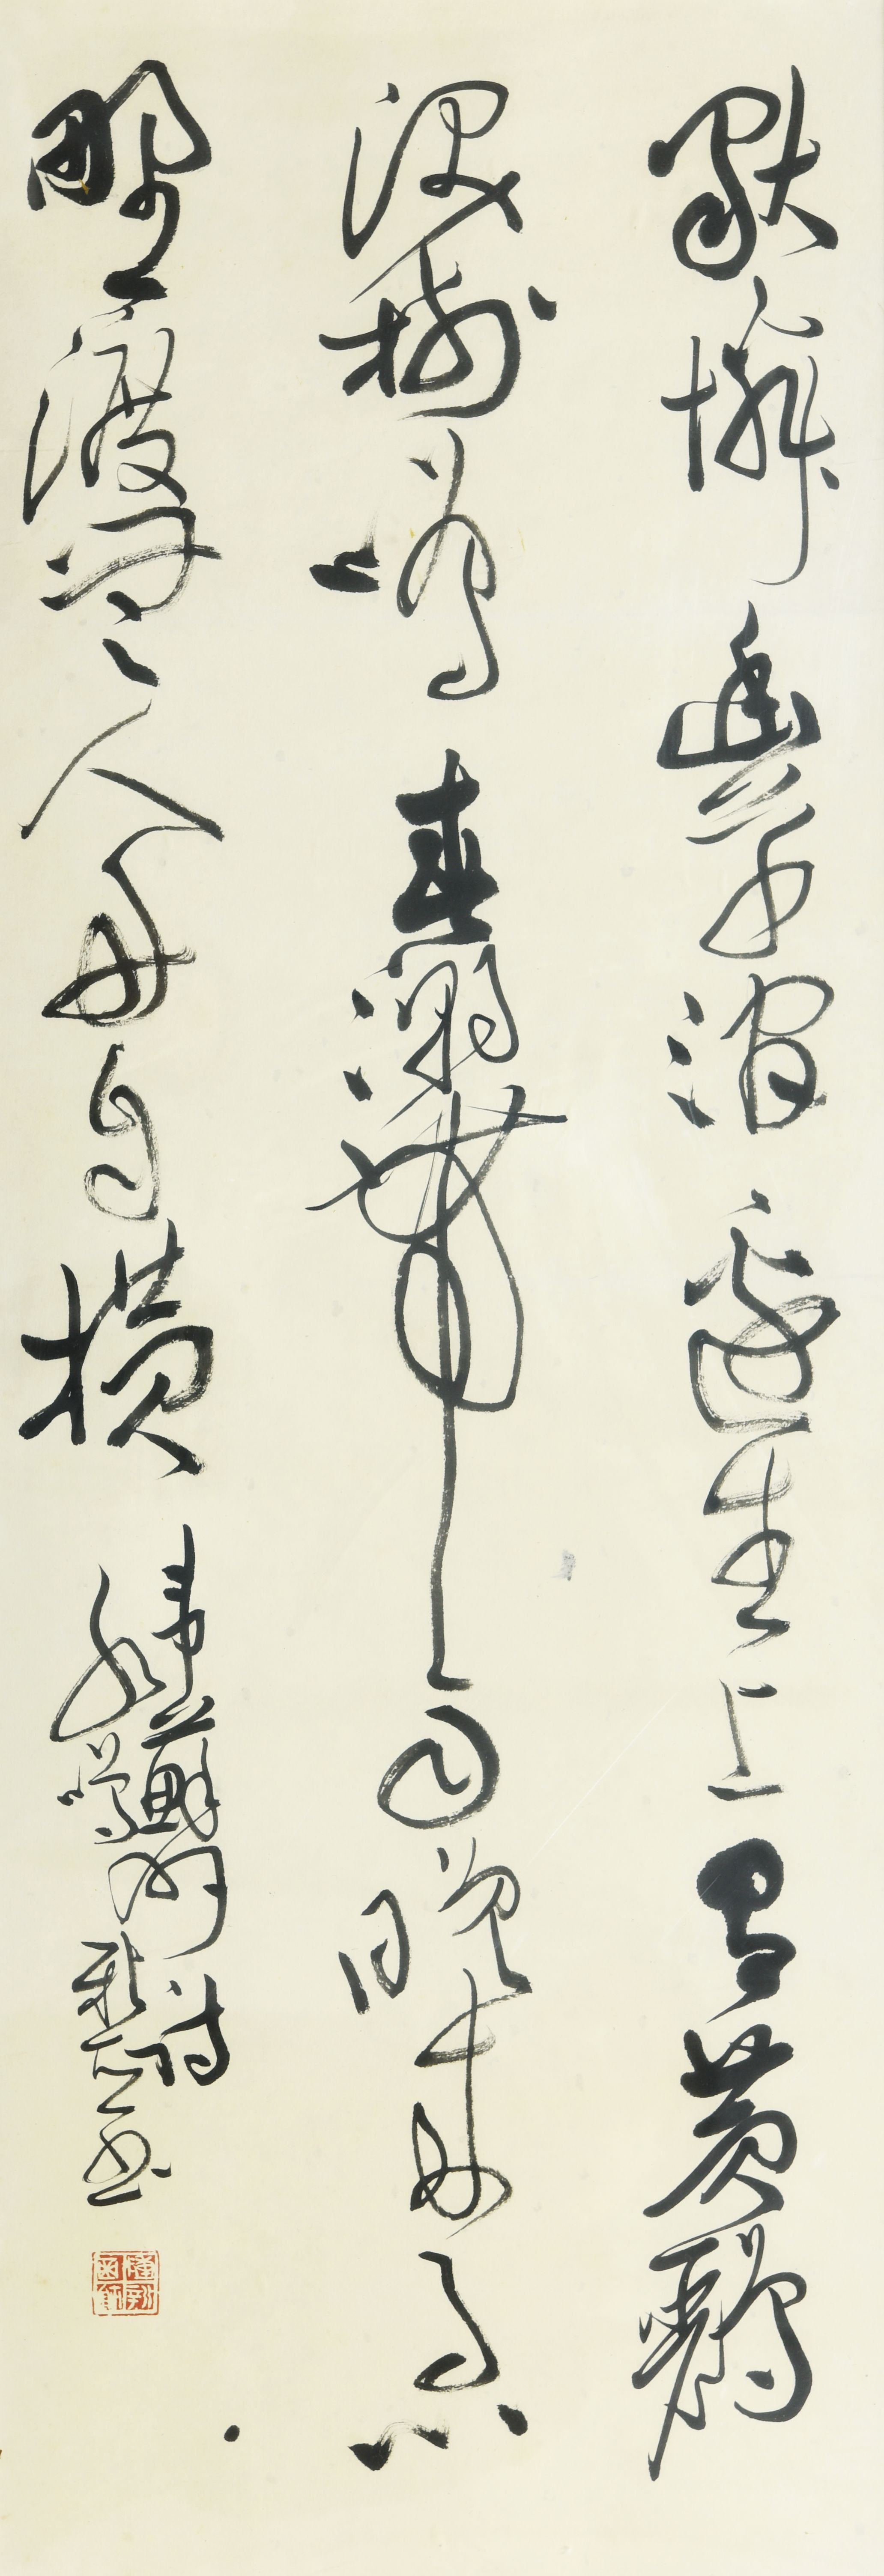 獨憐幽草澗邊生上有黃鸝
深樹鳴春潮帶雨晚來急
野渡無人舟自橫
韋蘇州詩